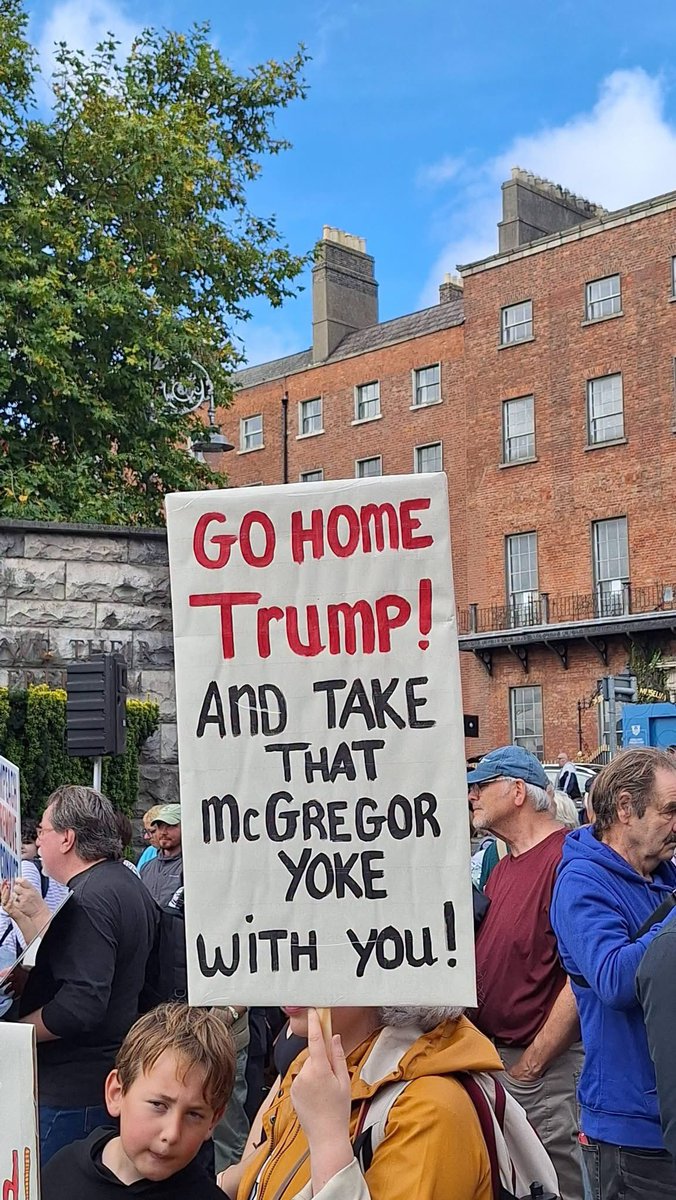 GO HOME
Trump!
AND TAKE
THAT
McGREGOR
YOKE
WITH YOU!